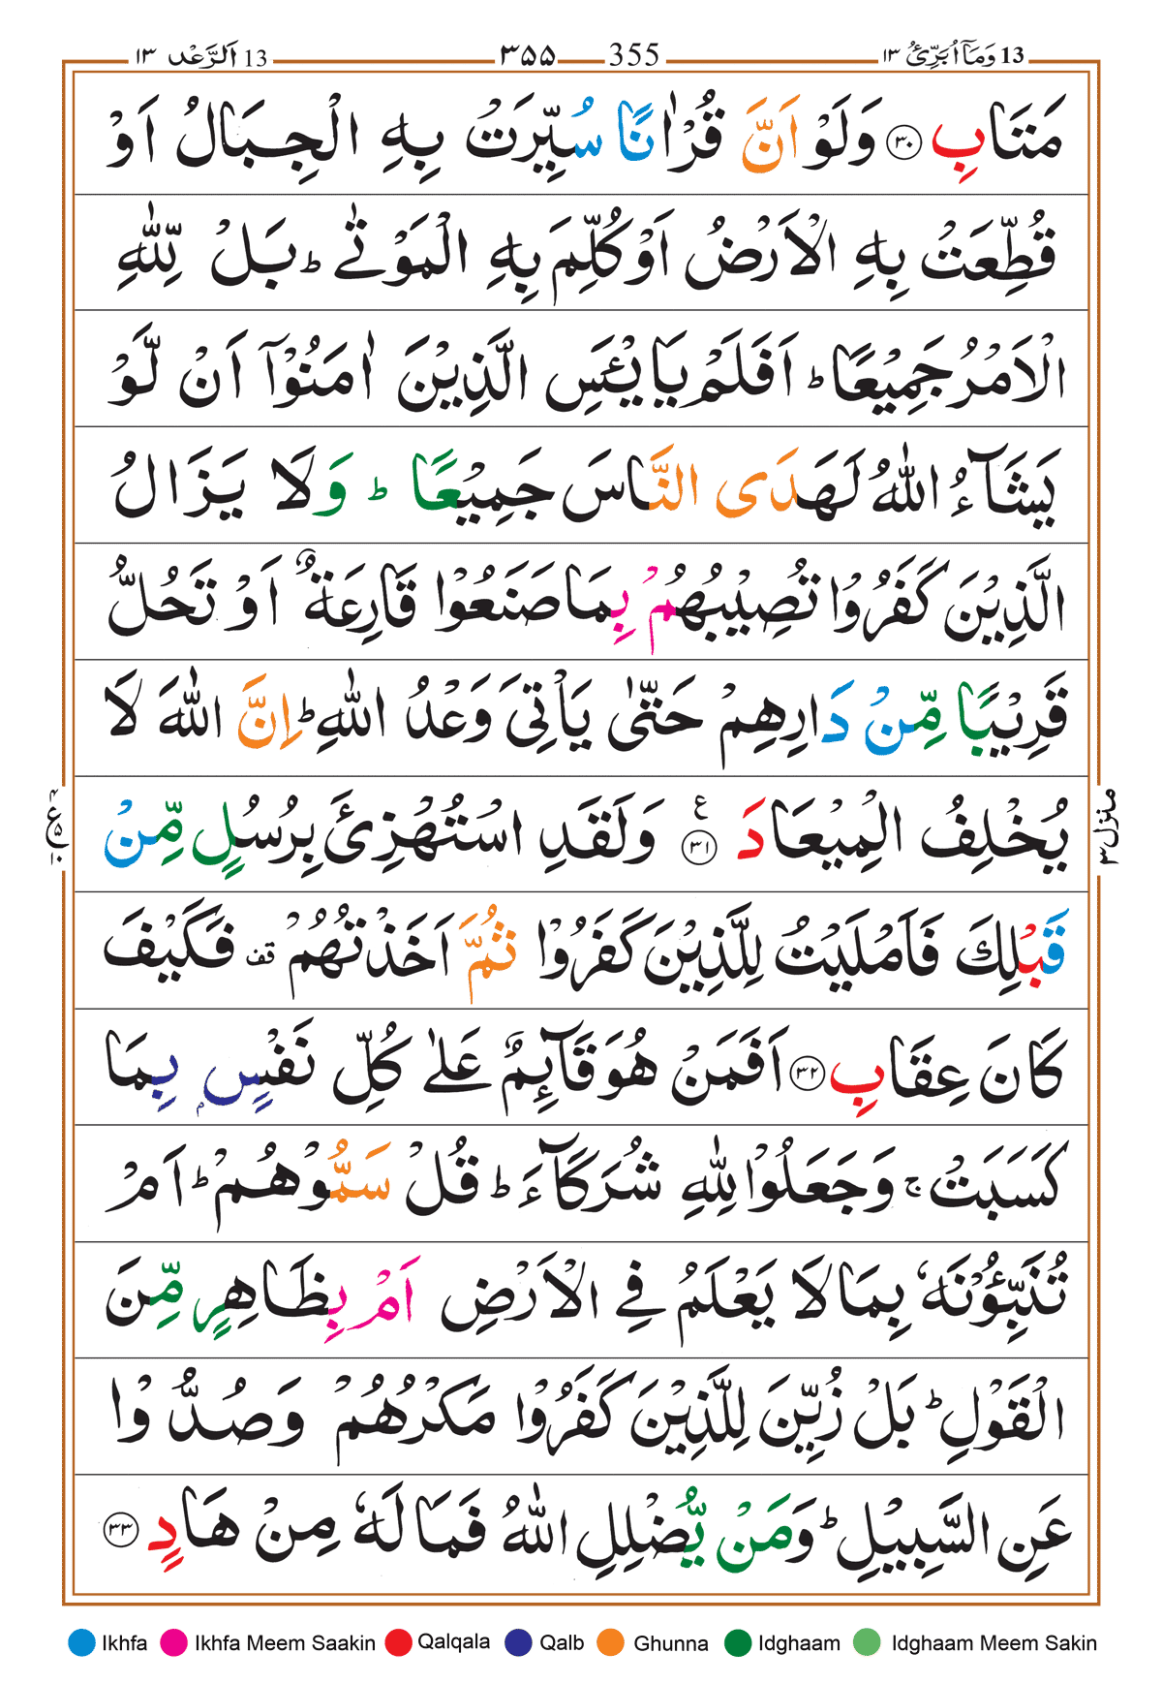 13 وَمَآ اُبَرِّئُ ١٣ 355 ۳۵۵ 13 اَلرَّعْد ١٣
مَتَابِ ﴿۳۰﴾ وَلَوْ اَنَّ قُرْاٰنًا سُيِّرَتْ بِهِ الْجِبَالُ اَوْ
قُطِّعَتْ بِهِ الْاَرْضُ اَوْ كُلِّمَ بِهِ الْمَوْتٰى ؕ بَلْ لِّلّٰهِ
الْاَمْرُ جَمِيْعًا ؕ اَفَلَمْ يَايْـَٔسِ الَّذِيْنَ اٰمَنُوْۤا اَنْ لَّوْ
يَشَآءُ اللّٰهُ لَهَدَى النَّاسَ جَمِيْعًا ؕ وَلَا يَزَالُ
الَّذِيْنَ كَفَرُوْا تُصِيْبُهُمْ بِمَا صَنَعُوْا قَارِعَةٌ اَوْ تَحُلُّ
قَرِيْبًا مِّنْ دَارِهِمْ حَتّٰى يَاْتِىَ وَعْدُ اللّٰهِ ؕ اِنَّ اللّٰهَ لَا
يُخْلِفُ الْمِيْعَادَ ﴿۳۱﴾ ع وَلَقَدِ اسْتُهْزِئَ بِرُسُلٍ مِّنْ
قَبْلِكَ فَاَمْلَيْتُ لِلَّذِيْنَ كَفَرُوْا ثُمَّ اَخَذْتُهُمْ قف فَكَيْفَ
كَانَ عِقَابِ ﴿۳۲﴾ اَفَمَنْ هُوَ قَآئِمٌ عَلٰى كُلِّ نَفْسٍۭ بِمَا
كَسَبَتْ ۚ وَجَعَلُوْا لِلّٰهِ شُرَكَآءَ ؕ قُلْ سَمُّوْهُمْ ؕ اَمْ
تُنَبِّـُٔوْنَهٗ بِمَا لَا يَعْلَمُ فِى الْاَرْضِ اَمْ بِظَاهِرٍ مِّنَ
الْقَوْلِ ؕ بَلْ زُيِّنَ لِلَّذِيْنَ كَفَرُوْا مَكْرُهُمْ وَصُدُّوْا
عَنِ السَّبِيْلِ ؕ وَمَنْ يُّضْلِلِ اللّٰهُ فَمَا لَهٗ مِنْ هَادٍ ﴿۳۳﴾
منزل ۳
Ikhfa Ikhfa Meem Saakin Qalqala Qalb Ghunna Idghaam Idghaam Meem Sakin